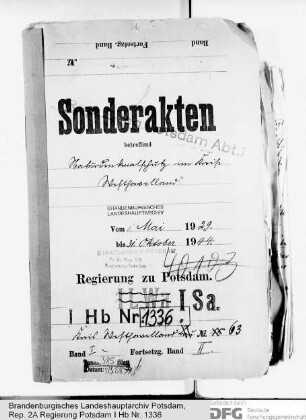 Band
Fortsetzg. Band
Sonderakten
betreffend
Naturdenkmalschutz im Kreise
Westhavelland
Potsdam Abt. I
BRANDENBURGISCHES
LANDESHAUPTARCHIV
Vom 1. Mai 1929.
bis 31. Oktober 1944
Pr. Br. Rep. 2A
Regierung Potsdam
Regierung zu Potsdam.
I Sa.
I Hb Nr. 1336.
Westhavelland Nr.
Band I Fortsetzg. Band II
Brandenburgisches Landeshauptarchiv Potsdam,
Rep. 2A Regierung Potsdam I Hb Nr. 1336
Gefördert durch
DFG Deutsche
Forschungsgemeinschaft